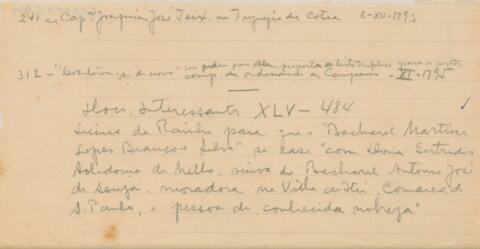 241 ao Cap.m Joaquim José Teix.ra na Freguezia de Cotia 2-XII-1793
312 - "levantou-se de novo" comp. de ordenanças de Campinas - XI-1795
Docs. Interessantes XLV - 484
Licença da Rainha para que o "Bacharel Martim
Lopes Branco e Silva" se case "com Dona Gertrudes
Solidonia de Mello, viuva do Bacharel Antonio José
de Souza, moradora na Villa de Itú, Comarca de
S. Paulo, e pessoa de conhecida nobreza"